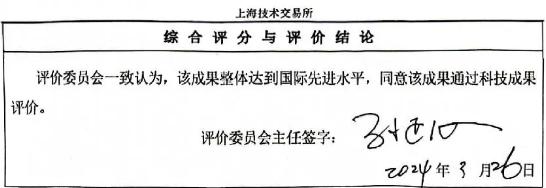 上海技术交易所
综合评分与评价结论
评价委员会一致认为，该成果整体达到国际先进水平，同意该成果通过科技成果
评价。
评价委员会主任签字：
2024年3月26日